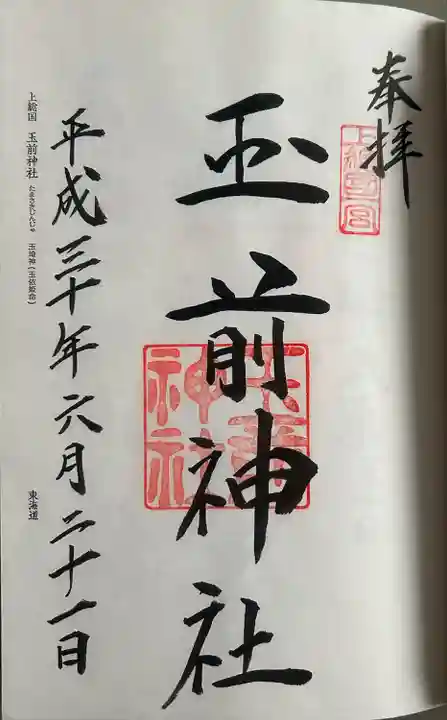 奉拝
上総国一宮
玉前神社
玉前神社
平成三十年六月二十一日
上総国 玉前神社 たまさきじんじゃ 玉埼神(玉依姫命)
東海道